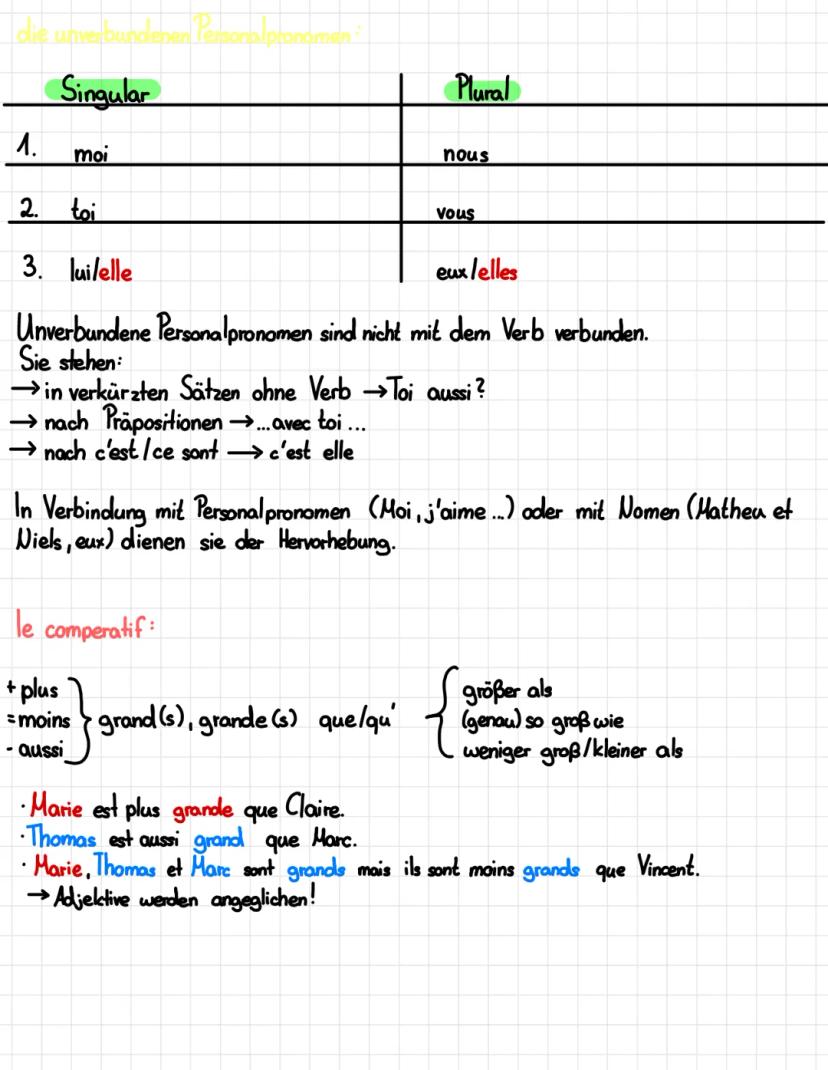 die unverbundenen Personalpronomen:
Singular Plural
1. moi nous
2. toi vous
3. lui/elle eux/elles
Unverbundene Personalpronomen sind nicht mit dem Verb verbunden.
Sie stehen:
→ in verkürzten Sätzen ohne Verb → Toi aussi?
→ nach Präpositionen → ...avec toi ...
→ nach c'est/ce sont → c'est elle
In Verbindung mit Personalpronomen (Moi, j'aime ...) oder mit Nomen (Matheu et
Niels, eux) dienen sie der Hervorhebung.
le comperatif:
+ plus größer als
= moins grand(s), grande(s) que/qu' (genau) so groß wie
- aussi weniger groß/kleiner als
· Marie est plus grande que Claire.
· Thomas est aussi grand que Marc.
· Marie, Thomas et Marc sont grands mais ils sont moins grands que Vincent.
→ Adjektive werden angeglichen!